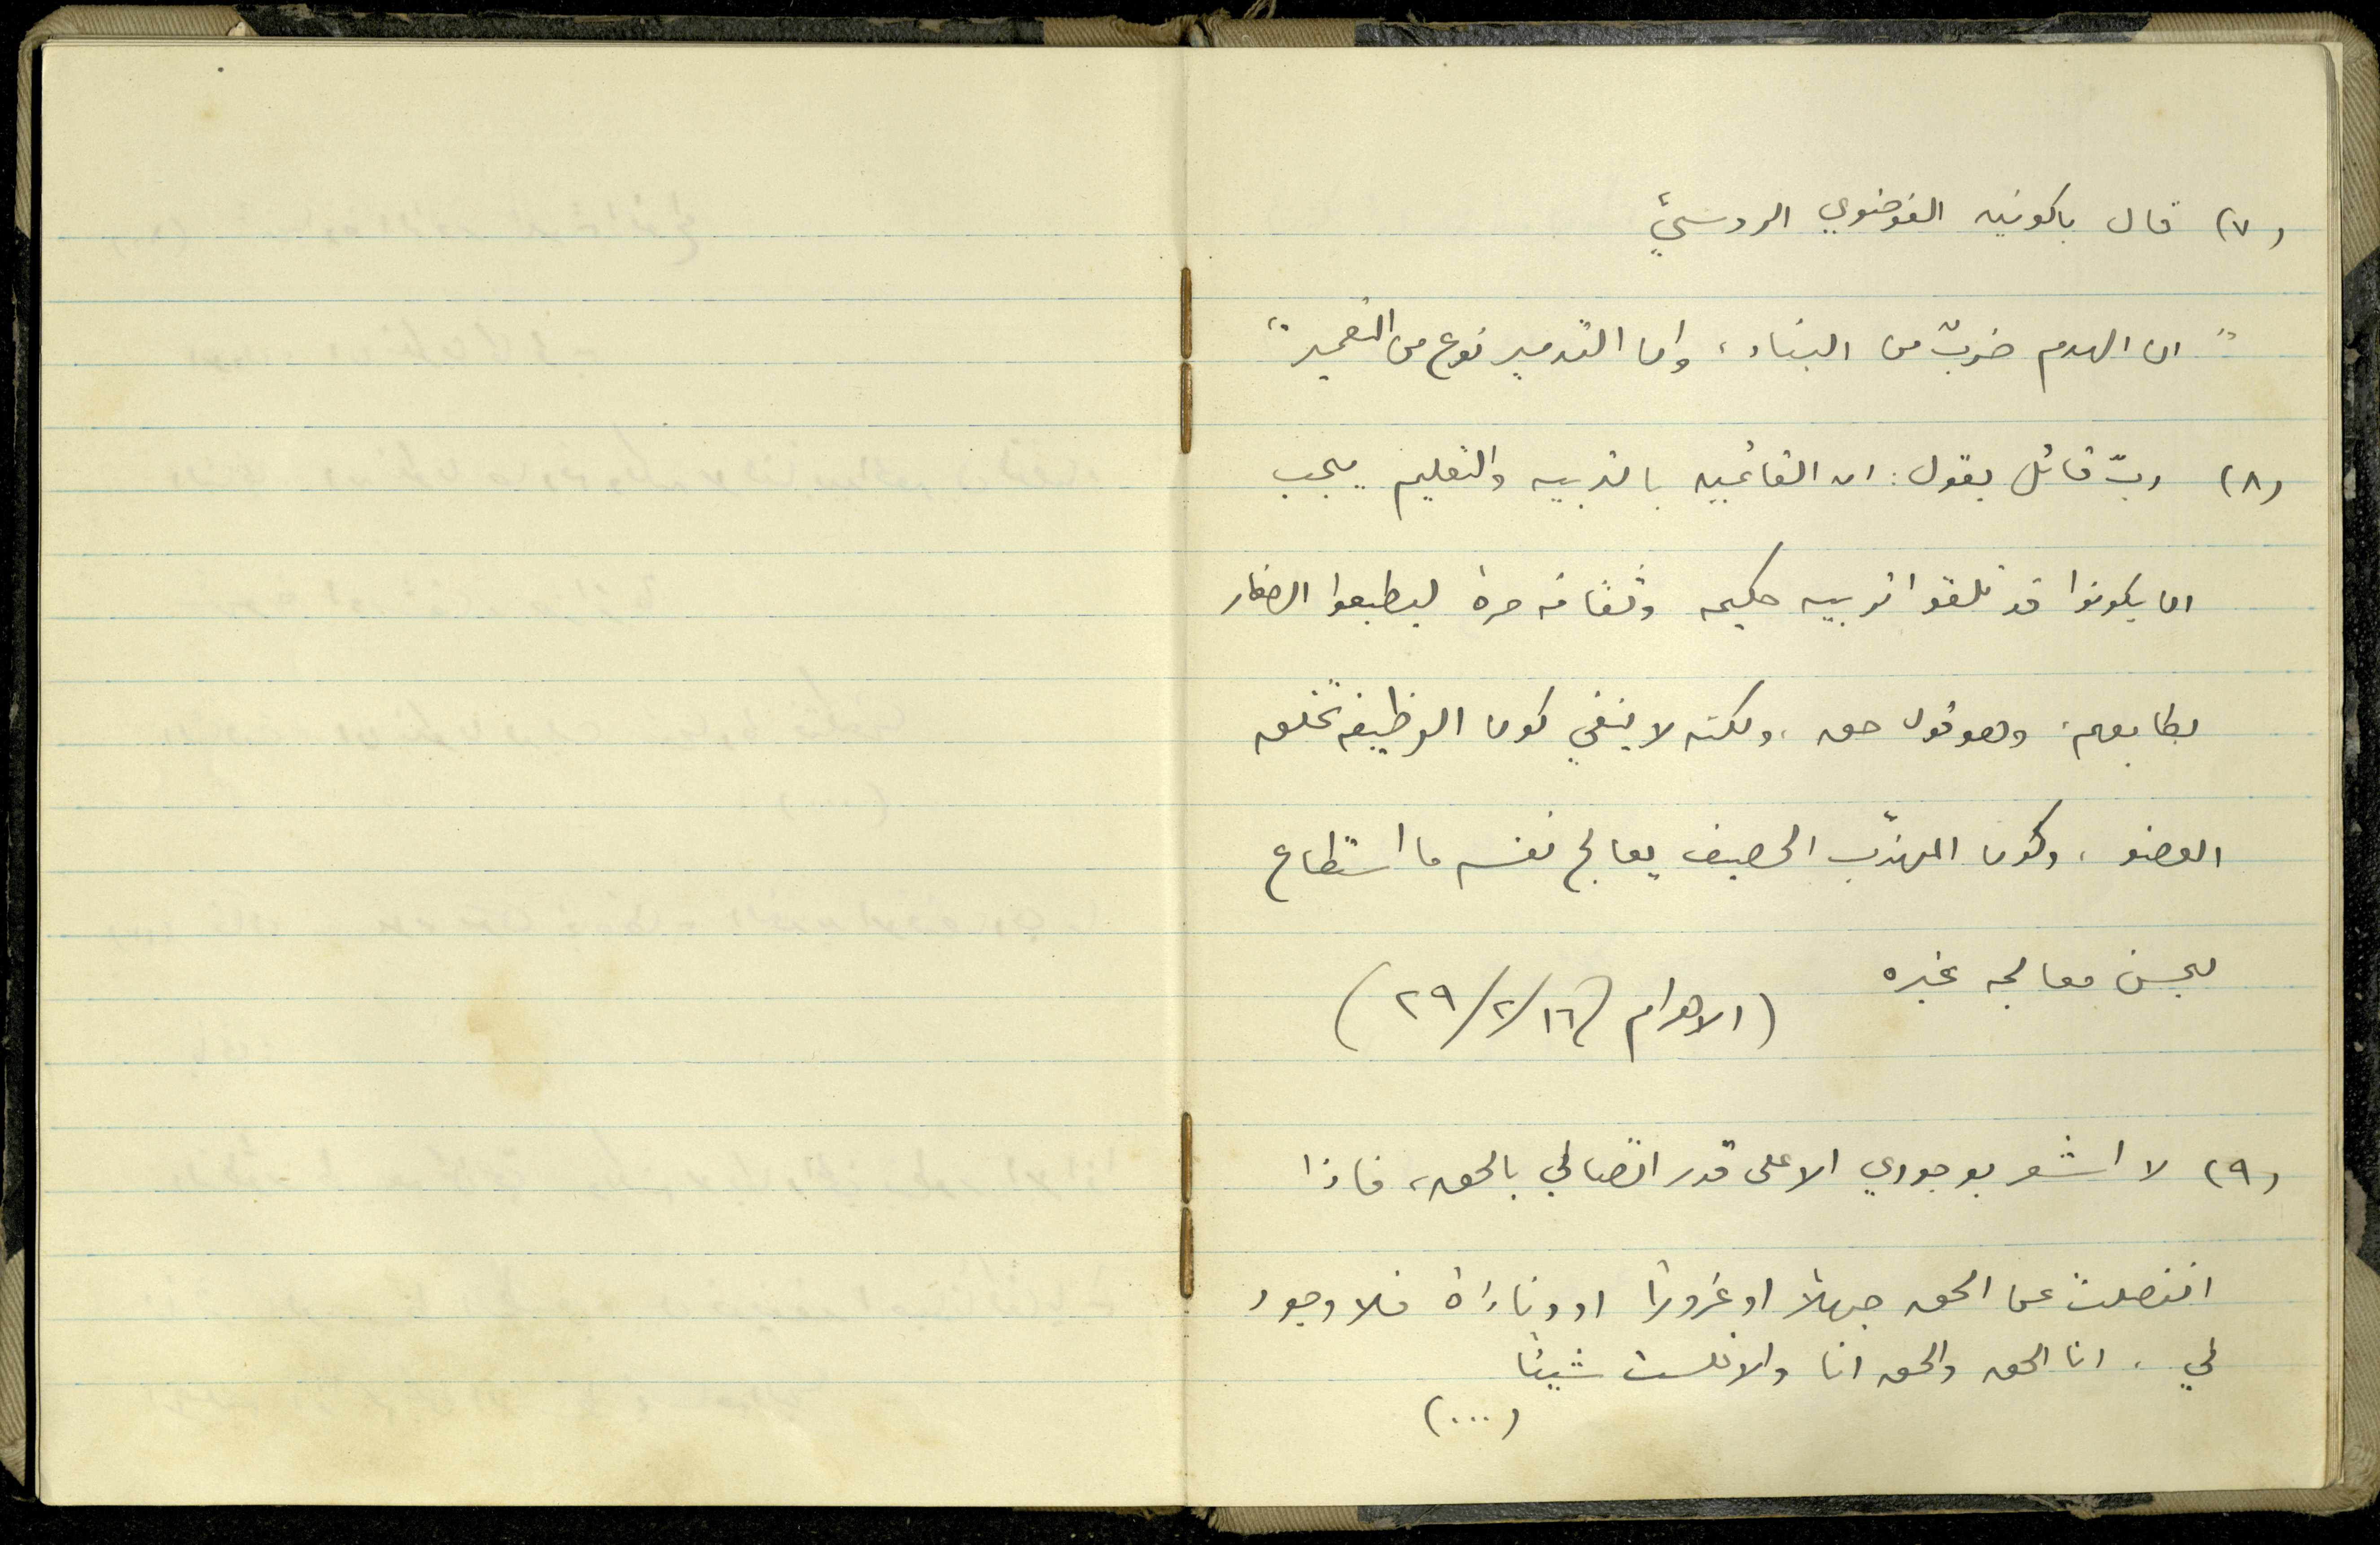 (٧) قال باكونين الفوضوي الروسيّ
" ان الهدم ضربٌ من البناء، وان التدمير نوع من التعمير "
(٨) ربّ قائل يقول: ان القائمين بالتربيه والتعليم يجب
ان يكونوا قد تلقوا تربيه حكيمه وثقافه حرة ليطبعوا الصغار
بطابعهم، وهو قول حق، ولكنه لا ينفي كون الوظيفه تخلق
العضو، وكون المهذّب الحصيف يعالج نفسه ما استطاع
ليحسن معالجه غيره
(الاهرام ١٦/٢/٢٩)
(٩) لا اشعر بوجودي الا على قدر اتصالي بالحق، فاذا
انفصلت عن الحق جهلاً او غروراً او دناءة فلا وجود
لي، انا الحق والحق انا والا فلست شيئا
(...)